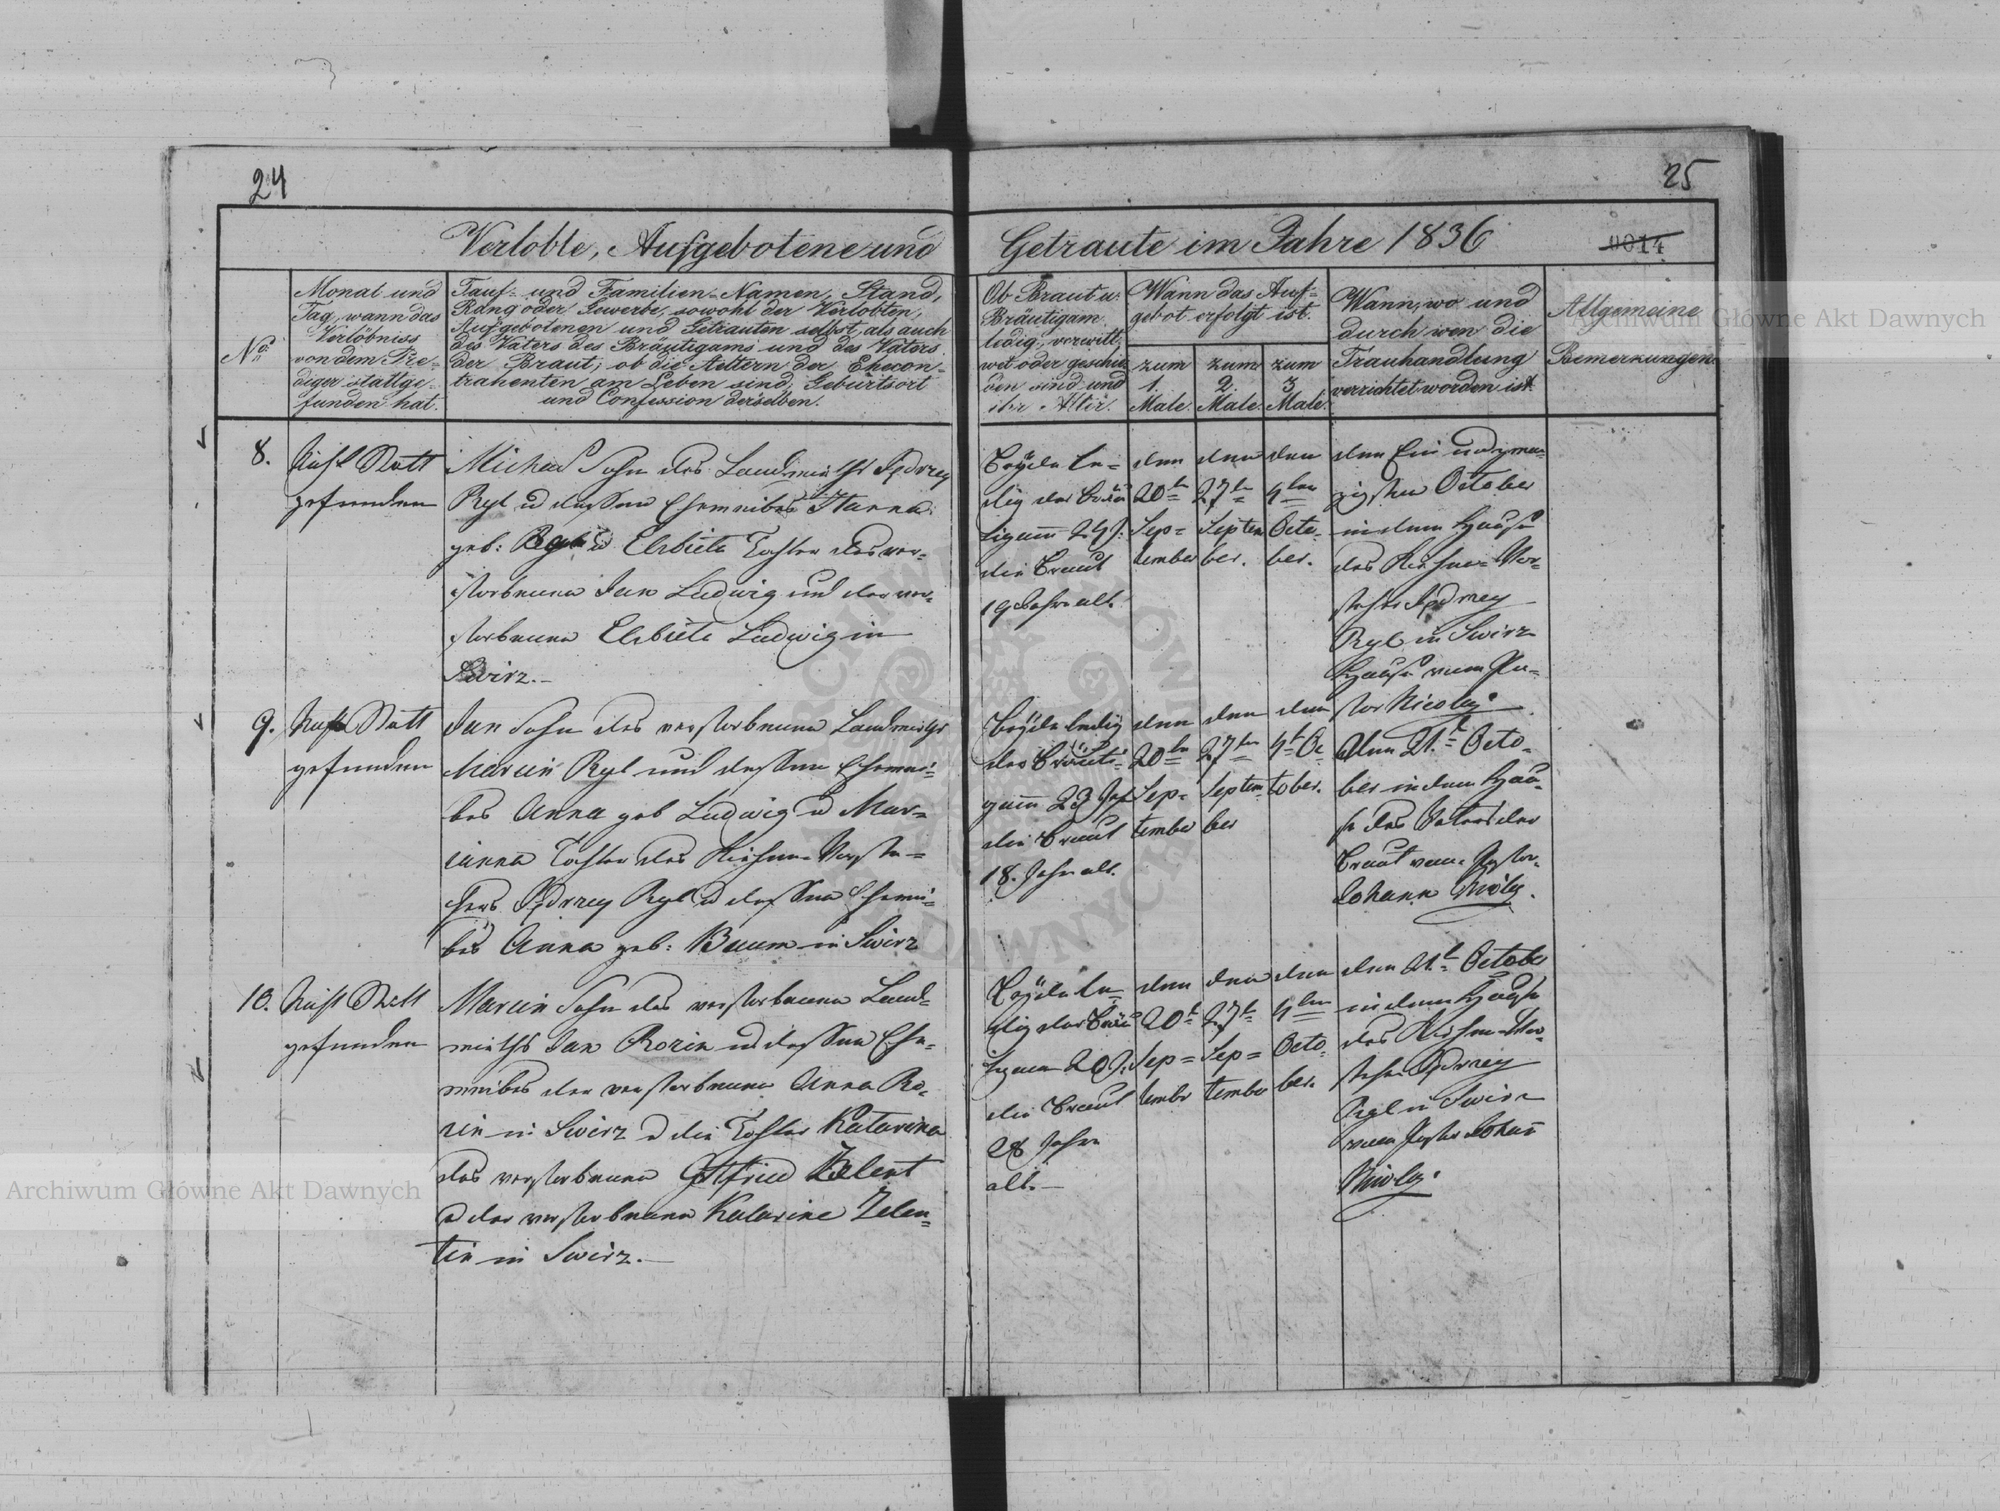 24
25
Verlobte, Aufgebotene und
Getraute im Jahre 1836
0014
No.
Monat und
Tag, wann das
Verlöbniss
von dem Pre-
diger stattge-
funden hat.
Tauf- und Familien-Namen, Stand,
Rang oder Gewerbe, sowohl der Verlobten,
Aufgebotenen und Getrauten selbst, als auch
des Vaters des Bräutigams und des Vaters
der Braut; ob die Aeltern der Ehecon-
trahenten am Leben sind; Geburtsort
und Confession derselben.
Ob Braut u.
Bräutigam
ledig, verwitt-
wet oder geschie-
den sind und
ihr Alter.
Wann das Auf-
gebot erfolgt ist.
zum
1.
Male.
zum
2.
Male.
zum
3.
Male.
Wann, wo und
durch wen die
Trauhandlung
verrichtet worden ist.
Allgemeine
Bemerkungen.
8.
Nicht Statt
gefunden
Michael Sohn des Landwirths Jędrzey
Ryl u dessen Eheweibes Hanna
geb: u Elsbieta Tochter des ver-
storbenen Jan Ludwig und der ver-
storbenen Elsbieta Ludwig in
Swirz.-
Beyde le-
dig der Bräu
tigam 24 J.
die Braut
19 Jahre alt.
den
20ten
Sep=
tember
den
27ten
Septem
ber.
den
4ten
Octo-
ber.
den Ein und zwan-
zigsten October
in dem Hause
des Kirchen-Vor-
stehers Jędrzey
Ryl in Swirz
Hause vom Pa-
stor Nicolay.
9.
Nicht Statt
gefunden
Jan Sohn des verstorbenen Landwirths
Marcin Ryl und dessen Ehewei-
bes Anna geb Ludwig u Mar=
ianna Tochter des Kirchen-Vorste=
hers Jędrzey Ryl u dessen Ehewei-
bes Anna geb: Baum in Swirz
Beyde ledig
der Bräuti-
gam 23 Jah
die Braut
18. Jahr alt.
den
20ten
Sep=
tember
den
27ten
Septem
ber
den
4t Oc
tober.
den 21.t Octo-
ber in dem Hau-
se des Vaters der
Braut vom Pastor
Johann Nicolay.
10.
Nicht Statt
gefunden
Marcin Sohn des verstorbenen Land-
wirths Jan Rozin u dessen Ehe-
weibes der verstorbenen Anna Ro-
zin in Swirz u die Tochter Katarina
des verstorbenen Gottfried Zelent
u der verstorbenen Katarine Zelen=
tin in Swirz.-
Beyde le-
dig der Bräu
tigam 20 J.
die Braut
28 Jahre
alt.-
den
20t
Sep=
tembr
den
27t
Sep=
tember
den
4ten
Octo-
ber.
den 21.t October
in dem Hause
des Kirchen-Vor-
stehers Jędrzey
Ryl in Swirz
vom Pastor Johann
Nicolay.
Archiwum Główne Akt Dawnych
Archiwum Główne Akt Dawnych